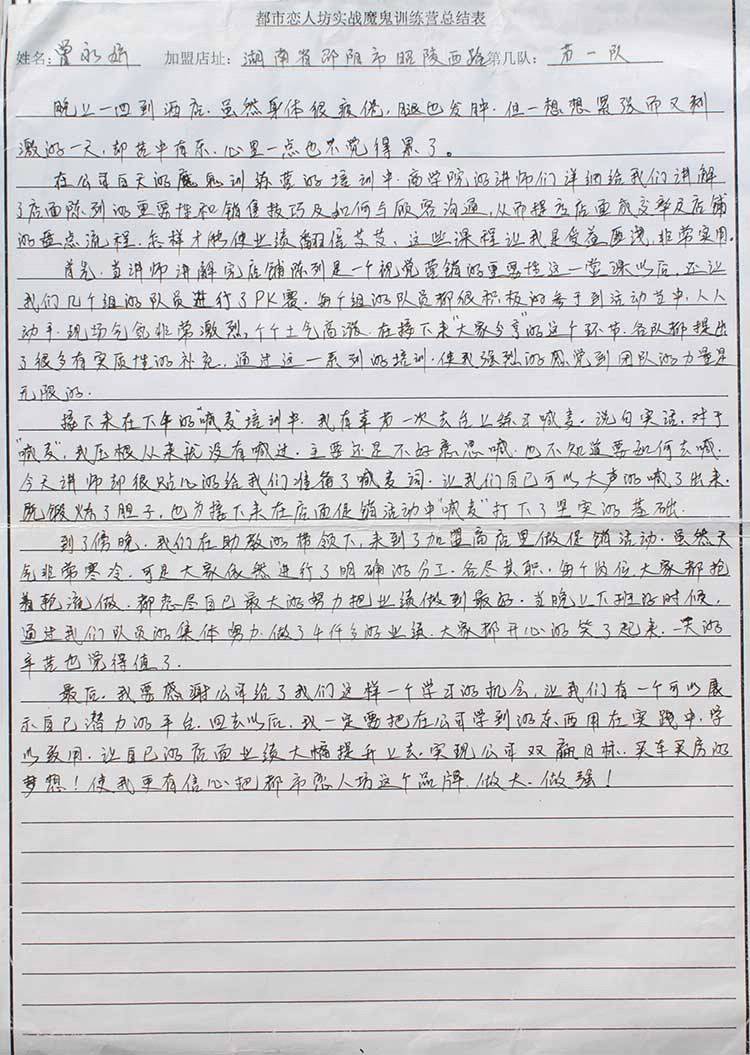 都市恋人坊实战魔鬼训练营总结表
姓名：曾永妍 加盟店址：湖南省邵阳市昭陵西路 第几队：第一队
晚上一回到酒店.虽然身体很疲倦，腿也发肿.但一想想紧张而又刺
激的一天，却苦中有乐.心里一点也不觉得累了。
在公司白天的魔鬼训练营的培训中.商学院的讲师们详细给我们讲解
了店面陈列的重要性和销售技巧及如何与顾客沟通，从而提高店面成交率及店铺
的要点流程.怎样才能使业绩翻倍等等、这些课程让我是受益匪浅，非常实用。
首先.当讲师讲解完店铺陈列是一个视觉营销的重要性这一堂课以后.还让
我们几个组的队员进行了PK赛.每个组的队员都很积极的参于到活动当中，人人
动手.现场气氛非常激烈.个个士气高涨.在接下来"大家分享"的这个环节.各队都提出
了很多有实质性的补充.通过这一系列的培训.使我强烈的感觉到团队的力量是
无限的.
接下来在下午的"喊麦"培训中.我有幸第一次去台上练习喊麦.说句实话.对于
"喊麦".我压根从来就没有喊过.主要还是不好意思喊.也不知道要如何去喊.
今天讲师却很贴心的给我们准备了喊麦词.让我们自己可以大声的喊了出来.
既锻炼了胆子，也为接下来在店面促销活动中"喊麦"打下了坚实的基础.
到了傍晚.我们在助教的带领下，来到了加盟商店里做促销活动.虽然天
气非常寒冷.可是大家依然进行了明确的分工.各尽其职.每个岗位.大家都抢
着轮流做.都恋尽自己最大的努力把业绩做到最好.当晚上下班的时候，
通过我们队员的集体努力.做了4仟多的业绩.大家都开心的笑了起来.一天的
辛苦也觉得值了.
最后.我要感谢公司给了我们这样一个学习的机会，让我们有一个可以展
示自己潜力的平台.回去以后.我一定要把在公司学到的东西用在实践中.学
以致用.让自己的店面业绩大幅提升上去.实现公司双赢目标.买车买房的
梦想！使我更有信心把都市恋人坊这个品牌.做大.做强！